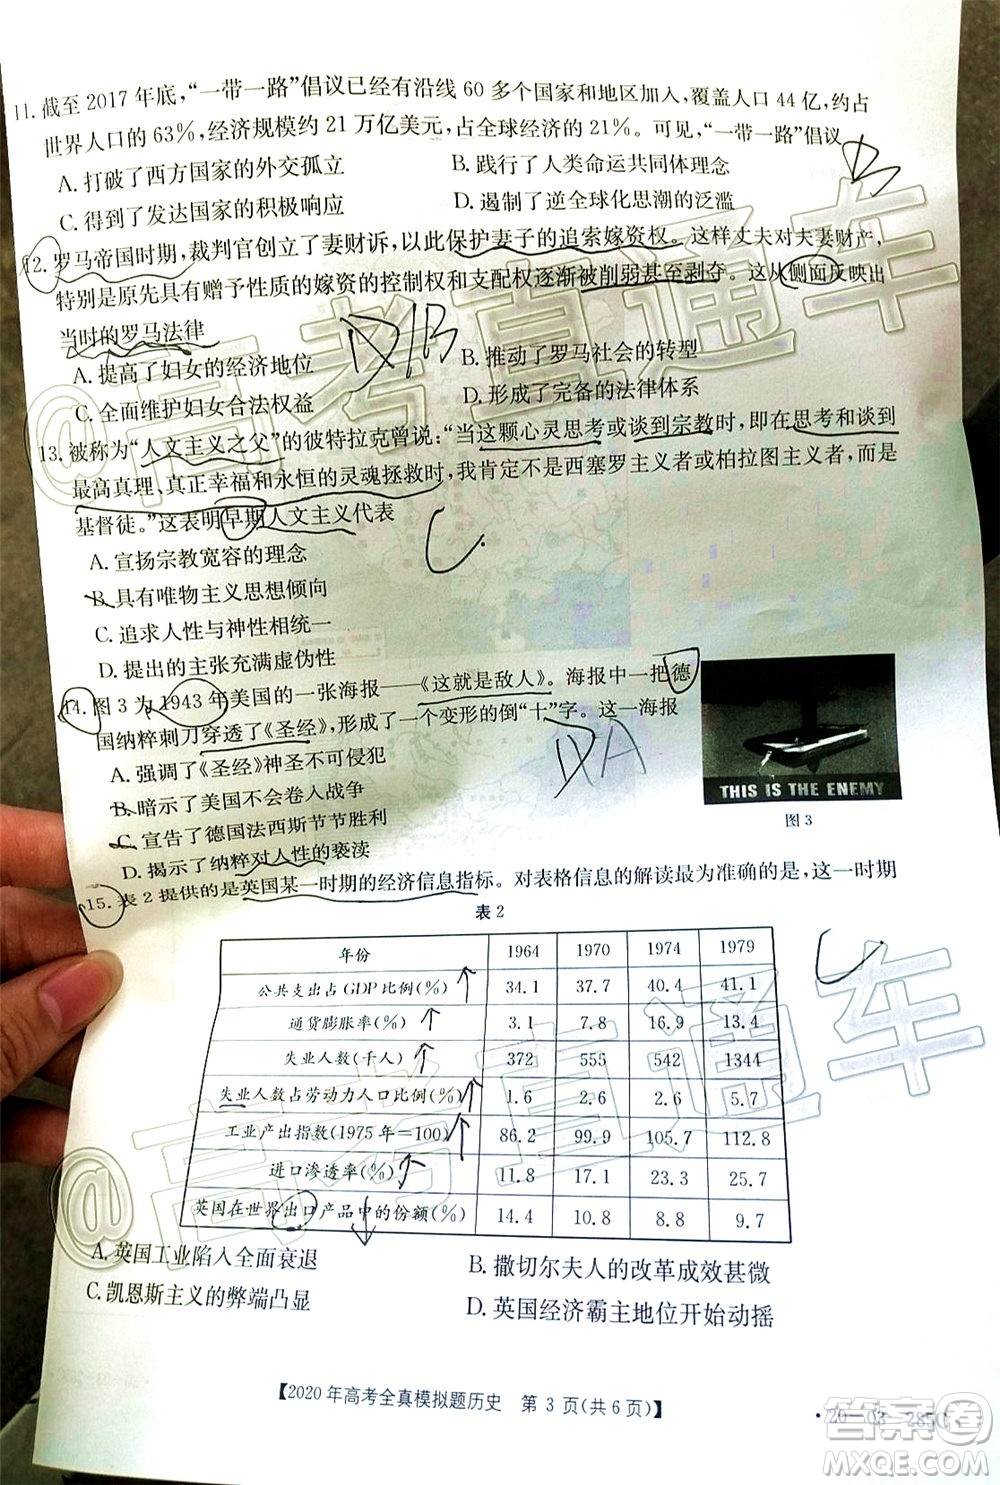 11. 截至 2017 年底，“一带一路”倡议已经有沿线 60 多个国家和地区加入，覆盖人口 44 亿，约占
世界人口的 63%，经济规模约 21 万亿美元，占全球经济的 21%。可见，“一带一路”倡议
B
A. 打破了西方国家的外交孤立
B. 践行了人类命运共同体理念
C. 得到了发达国家的积极响应
D. 遏制了逆全球化思潮的泛滥
12. 罗马帝国时期，裁判官创立了妻财诉，以此保护妻子的追索嫁资权。这样丈夫对夫妻财产，
特别是原先具有赠予性质的嫁资的控制权和支配权逐渐被削弱甚至剥夺。这从侧面反映出
当时的罗马法律
A. 提高了妇女的经济地位
B. 推动了罗马社会的转型
C. 全面维护妇女合法权益
D. 形成了完备的法律体系
13. 被称为“人文主义之父”的彼特拉克曾说：“当这颗心灵思考或谈到宗教时，即在思考和谈到
最高真理、真正幸福和永恒的灵魂拯救时，我肯定不是西塞罗主义者或柏拉图主义者，而是
基督徒。”这表明早期人文主义代表
C
A. 宣扬宗教宽容的理念
B. 具有唯物主义思想倾向
C. 追求人性与神性相统一
D. 提出的主张充满虚伪性
14. 图 3 为 1943 年美国的一张海报——《这就是敌人》。海报中一把德
国纳粹刺刀穿透了《圣经》，形成了一个变形的倒“十”字。这一海报
A. 强调了《圣经》神圣不可侵犯
B. 暗示了美国不会卷入战争
C. 宣告了德国法西斯节节胜利
D. 揭示了纳粹对人性的亵渎
THIS IS THE ENEMY
图 3
15. 表 2 提供的是英国某一时期的经济信息指标。对表格信息的解读最为准确的是，这一时期
表 2
年份 1964 1970 1974 1979
公共支出占 GDP 比例(%) 34.1 37.7 40.4 41.1
通货膨胀率(%) 3.1 7.8 16.9 13.4
失业人数(千人) 372 555 542 1344
失业人数占劳动力人口比例(%) 1.6 2.6 2.6 5.7
工业产出指数(1975 年=100) 86.2 99.9 105.7 112.8
进口渗透率(%) 11.8 17.1 23.3 25.7
英国在世界出口产品中的份额(%) 14.4 10.8 8.8 9.7
C
A. 英国工业陷入全面衰退
B. 撒切尔夫人的改革成效甚微
C. 凯恩斯主义的弊端凸显
D. 英国经济霸主地位开始动摇
【2020 年高考全真模拟题历史 第 3 页(共 6 页)】
·20-03-285C·
@高考直通车
@高考直通车
答案圈
MXQE.COM